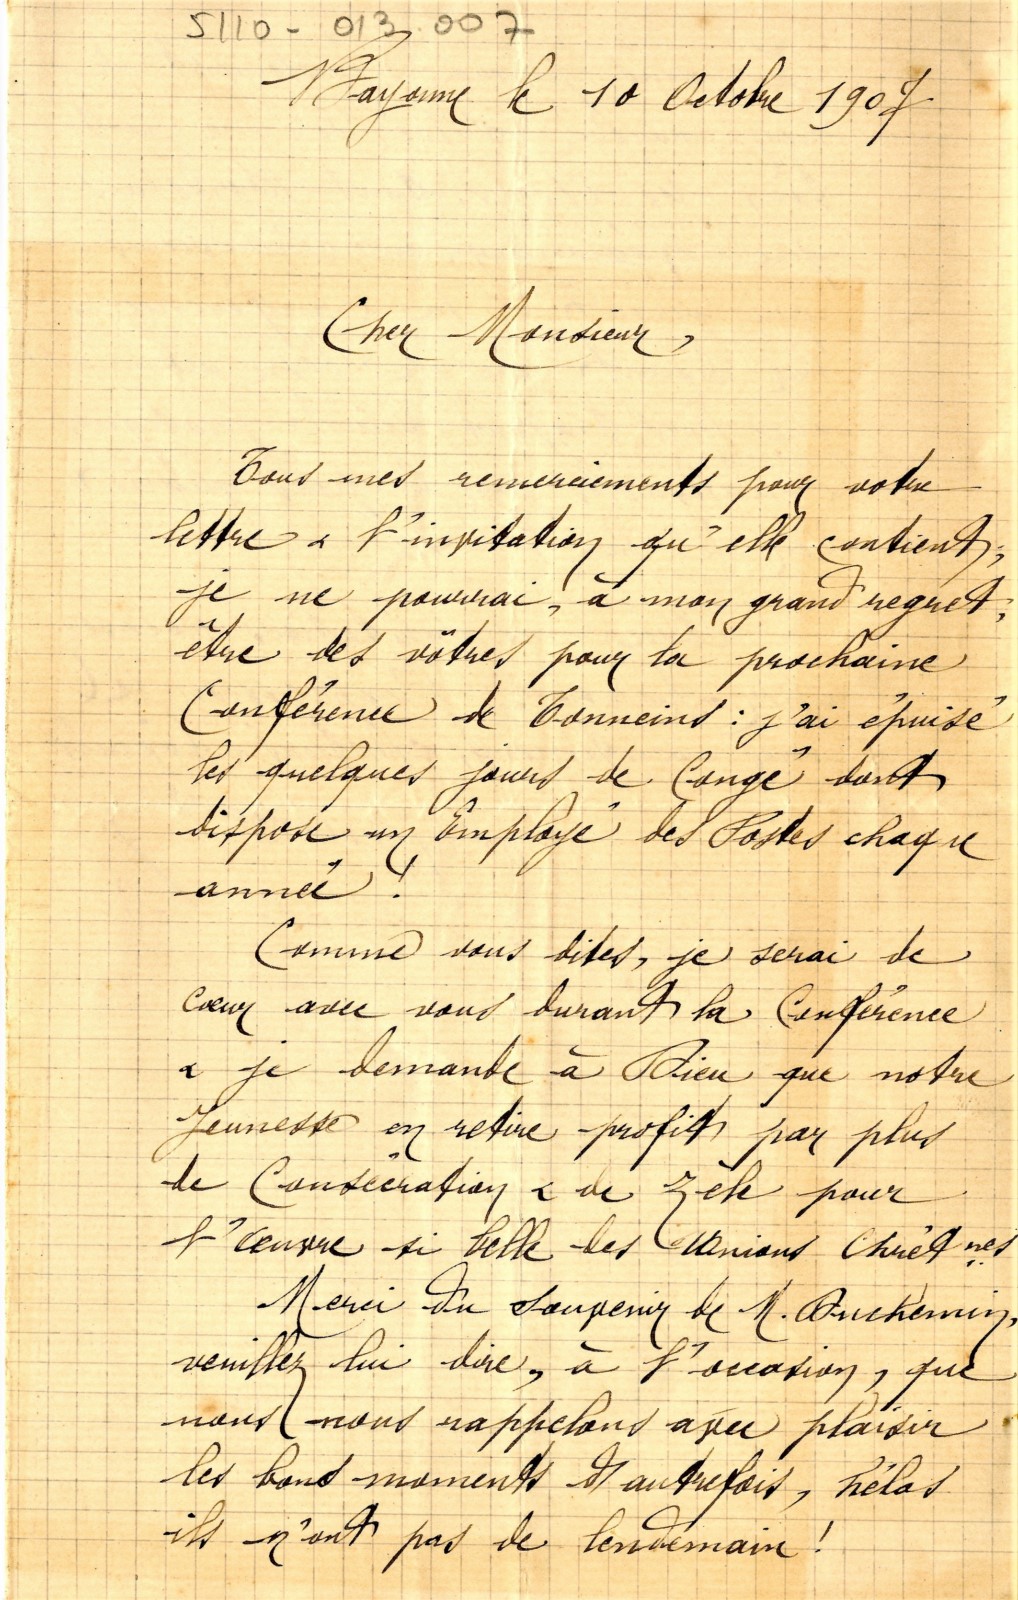 5110 - 013 007
Bayonne le 10 Octobre 1907
Cher Monsieur,
Tous mes remerciements pour votre
lettre & l'invitation qu'elle contient;
je ne pourrai, à mon grand regret,
être des vôtres pour la prochaine
Conférence de Tonneins : j'ai épuisé
les quelques jours de Congé dont
dispose un Employé des Postes chaque
année !
Comme vous dites, je serai de
cœur avec vous durant la Conférence
& je demande à Dieu que notre
Jeunesse en retire profit par plus
de Consécration & de Zèle pour
l'œuvre si belle des Unions Chrétnes
Merci du souvenir de M. Duchemin,
veuillez lui dire, à l'occasion, que
nous nous rappelons avec plaisir
les bons moments d'autrefois, hélas
ils n'ont pas de lendemain !